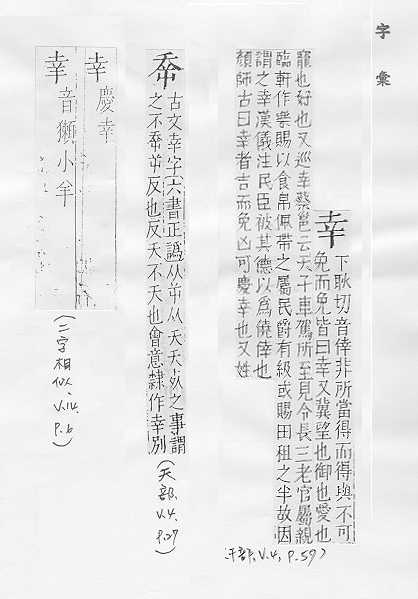 字彙
幸
下耿切音倖非所當得而得與不可
免而免皆曰幸又冀望也御也愛也
寵也好也又巡幸蔡邕云天子車駕所至見令長三老官屬親
臨軒作樂賜以食帛佩帶之屬民爵有級或賜田租之半故因
謂之幸漢儀注民臣被其德以爲僥倖也
顏師古曰幸者吉而免凶可慶幸也又姓
(干部、V.4, P.59)
古文幸字六書正譌从屰从夭夭死之事謂
之不屰反也反夭不夭也會意隷作幸別
(天部、V.4, P.27)
幸 慶幸
音獺小羊
(二字相似、V.14, P.6)